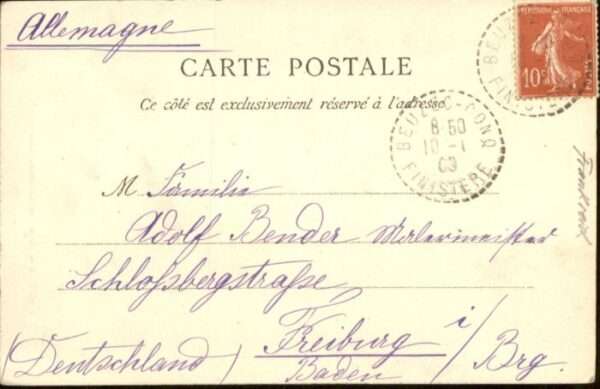 Allemagne
RÉPUBLIQUE FRANÇAISE
10c
BEUZEC-CONQ
FINISTÈRE
CARTE POSTALE
Ce côté est exclusivement réservé à l'adresse
BEUZEC-CONQ
8 50
10 -1
FINISTÈRE
Frankreich
M. Familie
Adolf Bender Malermeister
Schloßbergstraße
Freiburg i/Brg.
(Deutschland) Baden